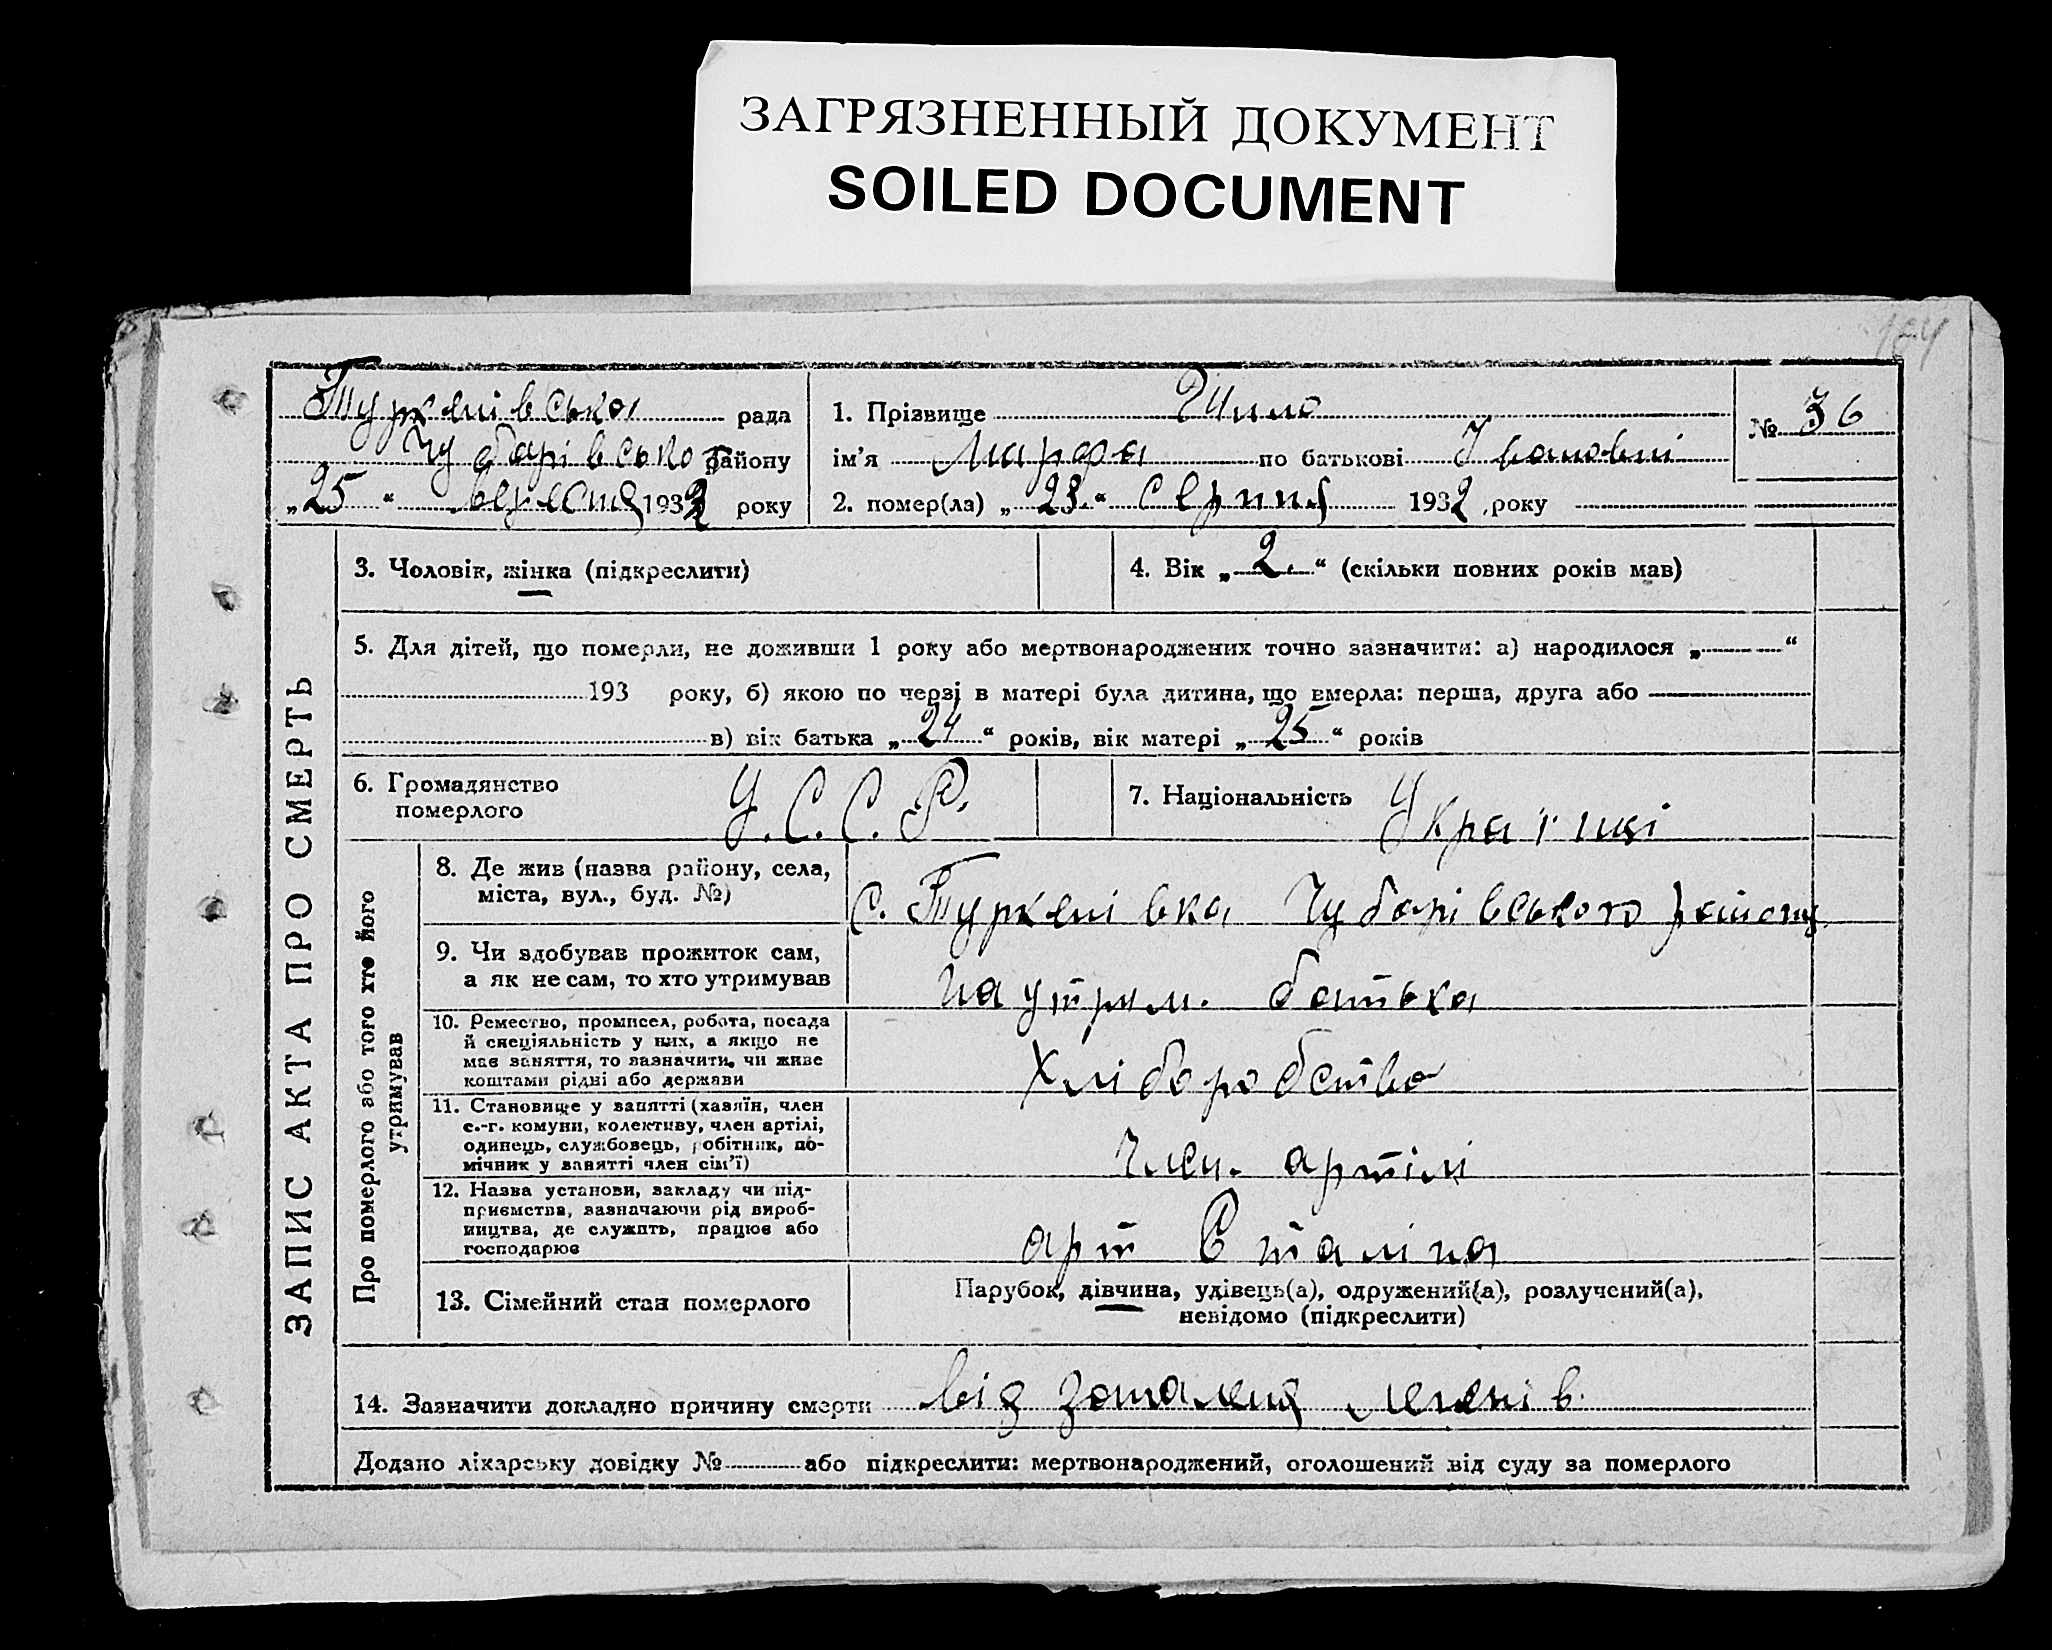 ЗАГРЯЗНЕННЫЙ ДОКУМЕНТ
SOILED DOCUMENT
124
Туркенівська рада
Чубарівського району
„25“ вересня 1932 року
1. Прізвище
ім'я Марфа по батькові Івановні
2. помер(ла) „23“ серпня 1932 року
№ 36
ЗАПИС АКТА ПРО СМЕРТЬ
3. Чоловік, жінка (підкреслити)
4. Вік „2.“ (скільки повних років мав)
5. Для дітей, що померли, не доживши 1 року або мертвонароджених точно зазначити: а) народилося „ “
193 року, б) якою по черзі в матері була дитина, що вмерла: перша, друга або
в) вік батька „24“ років, вік матері „25“ років
6. Громадянство
померлого
У.С.С.Р.
7. Національність
Про померлого або того хто його
утримував
8. Де жив (назва району, села,
міста, вул., буд. №)
с. Туркенівка Чубарівського району
9. Чи здобував прожиток сам,
а як не сам, то хто утримував
на утрим. батька
10. Ремество, промисел, робота, посада
й спеціяльність у них, а якщо не
мав заняття, то зазначити, чи живе
коштами рідні або держави
Хліборобство
11. Становище у занятті (хазяїн, член
с.-г. комуни, колективу, член артілі,
одинець, службовець, робітник, по-
мічник у занятті член сім'ї)
Член. артілі
12. Назва установи, закладу чи під-
приємства, зазначаючи рід вироб-
ництва, де служить, працює або
господарює
арт Сталіна
13. Сімейний стан померлого
Парубок, дівчина, удівець(а), одружений(а), розлучений(а),
невідомо (підкреслити)
14. Зазначити докладно причину смерти від запаленя легенів.
Додано лікарську довідку № або підкреслити: мертвонароджений, оголошений від суду за померлого